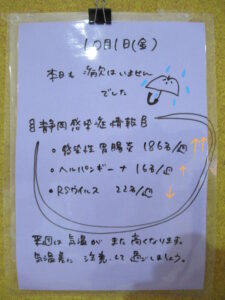 10月1日(金)
本日も 病欠はいません
でした
静岡感染症情報
○ 感染性胃腸炎 186名/週 ↑↑
○ ヘルパンギーナ 16名/週 ↑
○ RSウイルス 22名/週 ↓
来週は気温が また 高くなります。
気温差に 注意して 過ごしましょう。